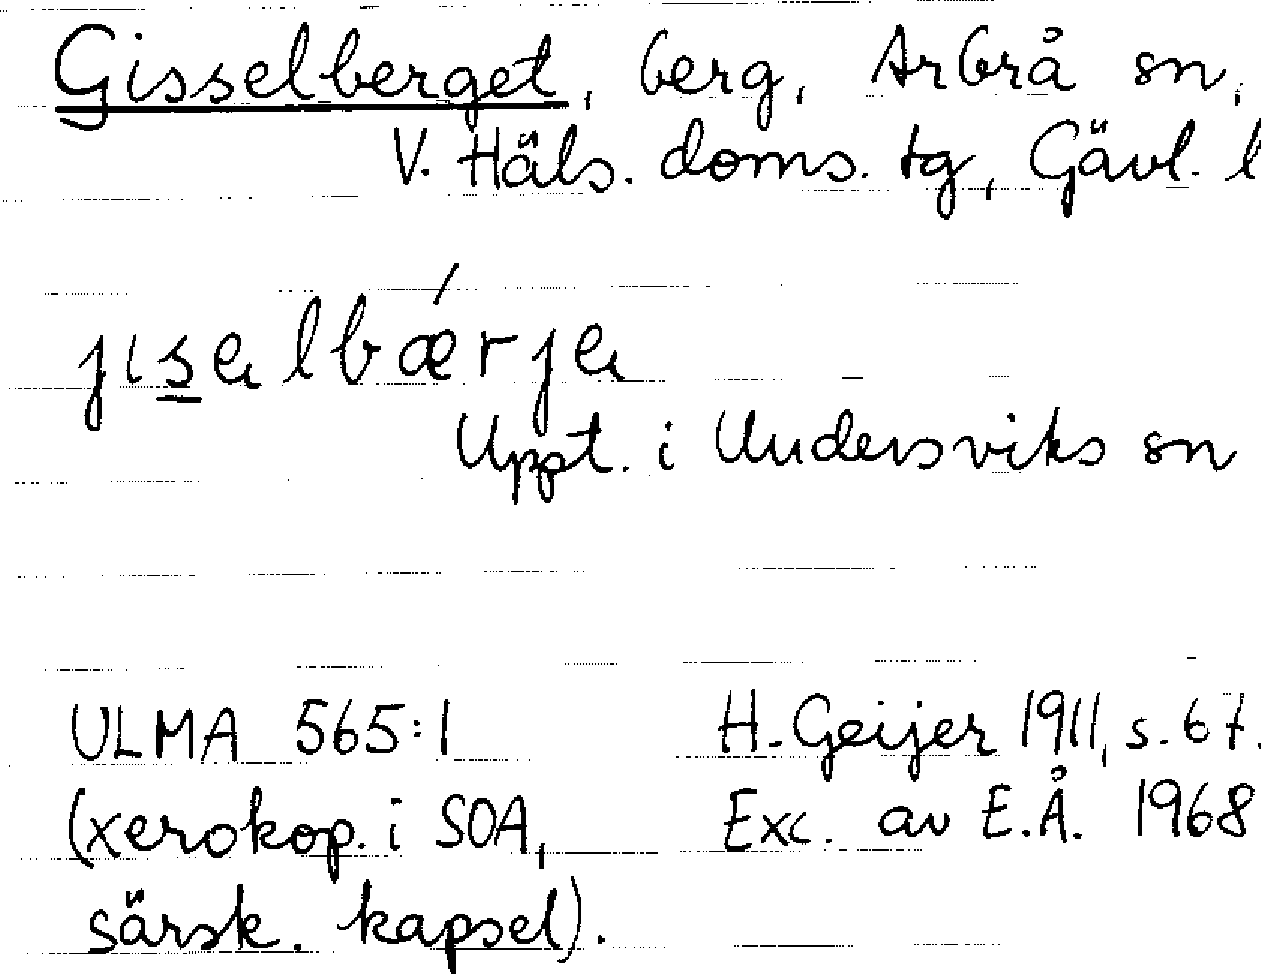 Gisselberget, berg, Arbrå sn,
V. Häls. doms. tg, Gävl. l
jısela lbǽrje
Uppt. i Undersviks sn
ULMA 565:1 H. Geijer 1911, s. 67.
(xerokop. i SOA, Exc. av E.Å. 1968
särsk. kapsel).